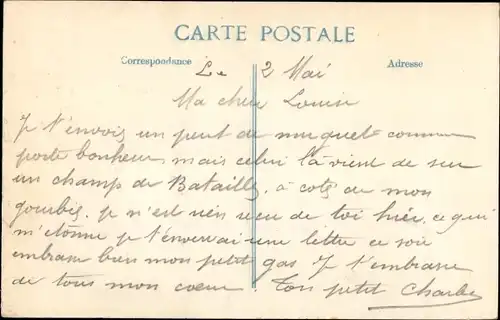 CARTE POSTALE
Correspondance
Adresse
Le 2 Mai
Ma cher Louise
Je t'envois un peut de muguet comme
porte bonheur mais celui là vient de sur
un champ de Bataille, à coté de mon
gourbis. je n'est rien reçu de toi hier, ce qui
m'étonne je t'enverrai une lettre ce soir
embrasse bien mon petit gas Je t'embrasse
de tous mon coeur. Ton petit Charles